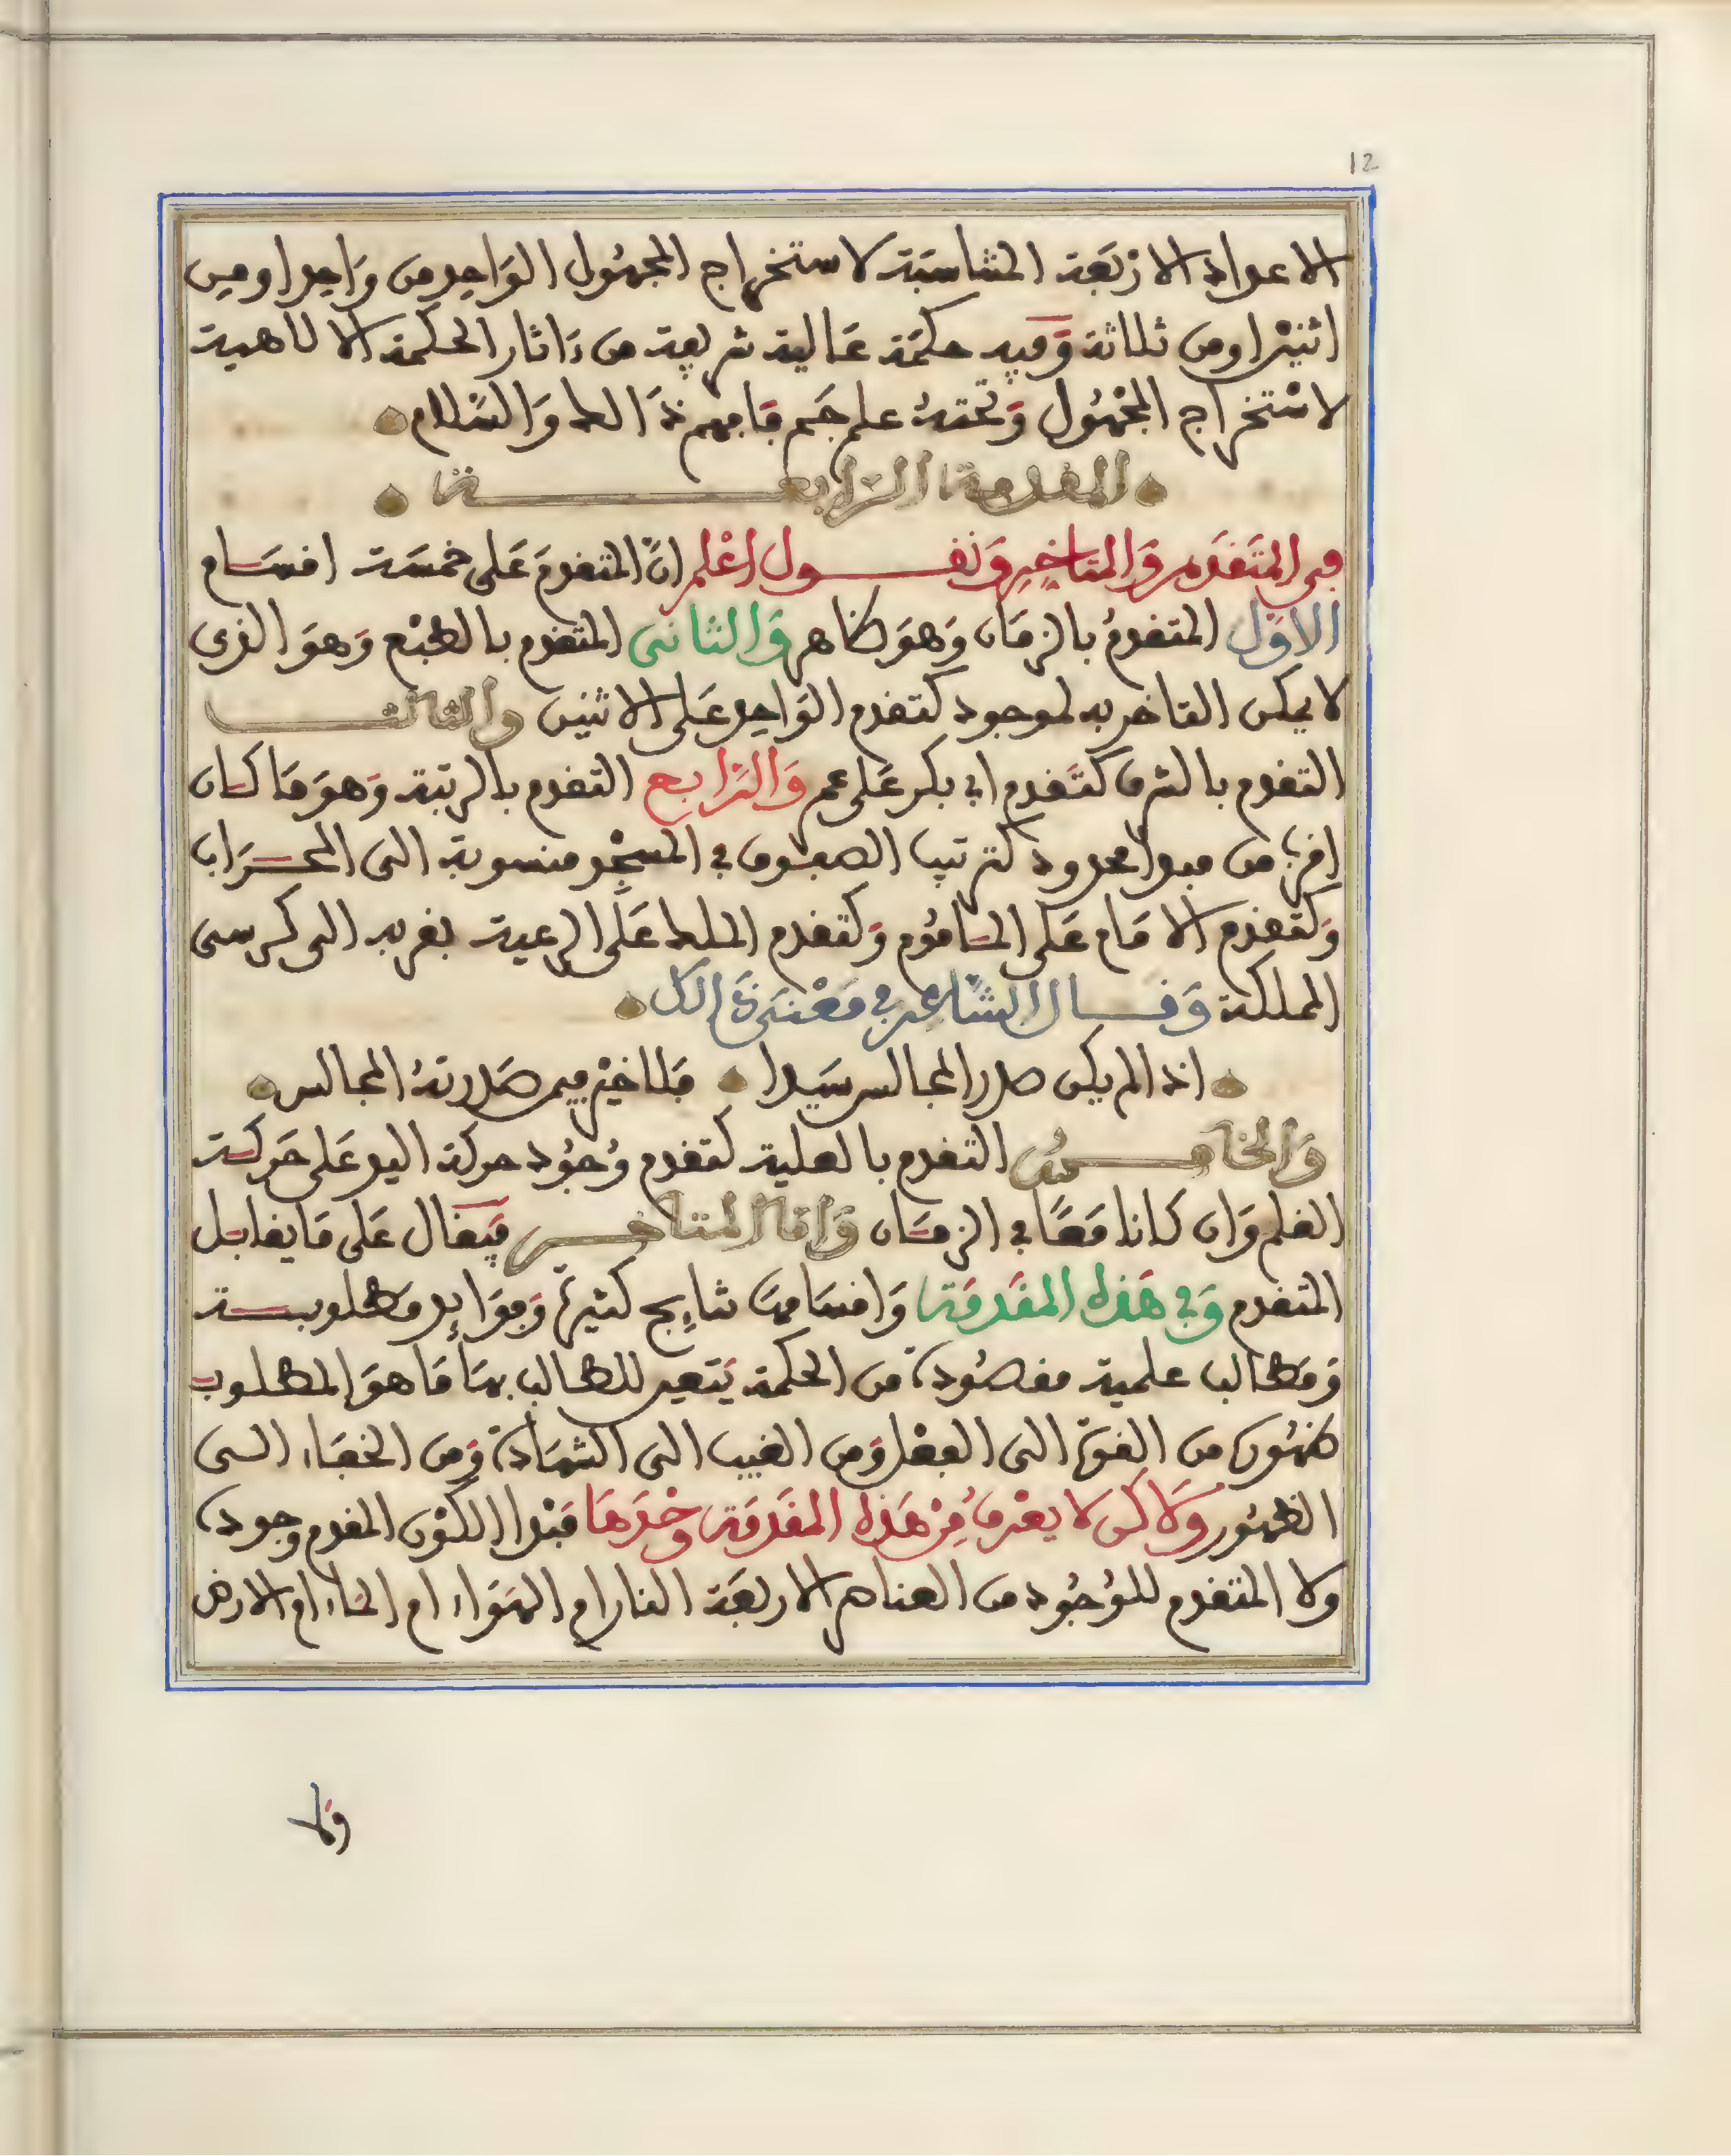 12
الاعداد الارْبَعَة المتناسبَة لاستخراج المجهُول الوَاحِد من وَاحِد او من
اثنيْن او من ثلاثة وَفيه حكمَة عَالية شريفة من ءَاثار الحكمة الالاهية
لاسْتخراج المجْهُول وَتحتهُ علم جَم فَافهم ذَالك وَالسَّلام
المقدمة الرَّابعـــة
في المتَقَدم وَالمتاخِر وَنقـــول اعْلم انَّ المتقدمَ عَلى خمسَة اقسَام
الاوَّل المتقدمُ بالزمَان وَهوَ ظاهر وَالثاني المتقدم بالطبْع وَهوَ الذي
لا يمكن التاخر به لموجود كتقدم الوَاحِد عَلى الاثنين والثالث
التقدم بالشرف كتَقدم ابي بكر عَلى عمر وَالرَّابع التقدم بالرتبة وَهوَ مَا كان
اقرب من مبدإ محدود كترتيب الصفوف في المسجْد منسوبة الى المحرَاب
وَكتَقدم الامَام عَلى المامُوم وَكتقدم الملك عَلى الرعية بقربه الى كرسي
المملكة وَقـــال الشَّاعر في مَعْنى ذَالك
اذا لم يكن صدر المجالس سَيدا فلا خيْر فيمن صَدرتهُ المجالس
وَالخامـــسُ التقدم بالعلية كتقدم وُجُود حركة اليد عَلى حَركة
القلم وَان كانا مَعًا في الزمَان وَامَّا المتاخـــر فيقال عَلى مَا يقابل
المتقدم وَفي هَذه المقَدمَة وَاقسَامهَا نتايج كثيرة وَفوَايد مَطلوبـة
وَمَطالب علمية مقصُودة من الحكمة يَتعين للطالب بهَا مَا هوَ المطلوب
ظهُوره من القوة الى الفعْل وَمن الغيب الى الشهَادة وَمن الخفَاء الى
الظهُور وَلاكن لا يعْرفُ مِنْ هَذه المقَدمَة وحْدَهَا مَبْدا الكوْن المقدم وجوده
ولا المتقدم للوُجُود من العناصر الاربعَة النار ام الهوَاء ام الماء ام الارض
وَلا